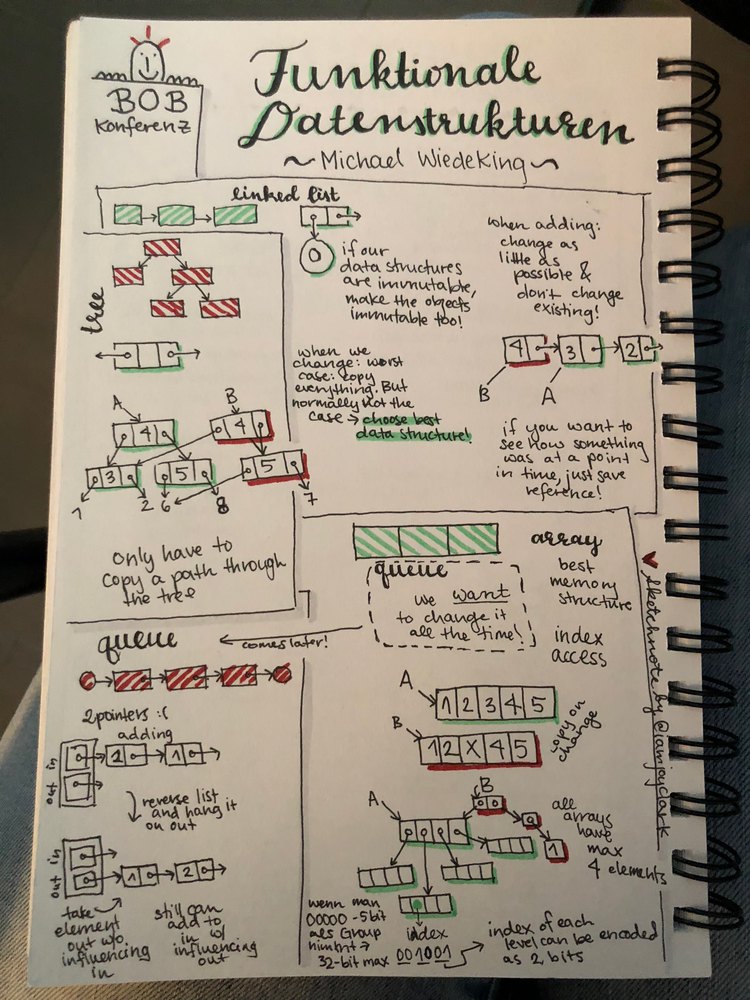 BOB
Konferenz
Funktionale
Datenstrukturen
~Michael Wiedeking~
linked list
0
if our
data structures
are immutable,
make the objects
immutable too!
when adding:
change as
little as
possible &
don't change
existing!
4 3 2
B A
when we
change: worst
case: copy
everything. But
normally not the
case → choose best
data structure!
if you want to
see how something
was at a point
in time, just save
reference!
tree
A B
4 4
3 5 5
1 2 6 8 7
only have to
copy a path through
the tree
array
best
memory
structure
index
access
queue
we want
to change it
all the time!
comes later!
A
1 2 3 4 5
B
1 2 X 4 5
copy on
change
A B
0 0
0
1
all
arrays
have
max
4 elements
wenn man
00000 - 5 bit
als Group
nimmt →
32-bit max
index
001001
index of each
level can be encoded
as 2 bits
queue
2 pointers :(
adding
in
out
2 1
reverse list
and hang it
on out
in
out
1 2
take
element
out w/o
influencing
in
still can
add to
in w/
influencing
out
sketchnote by @iamjoyclark